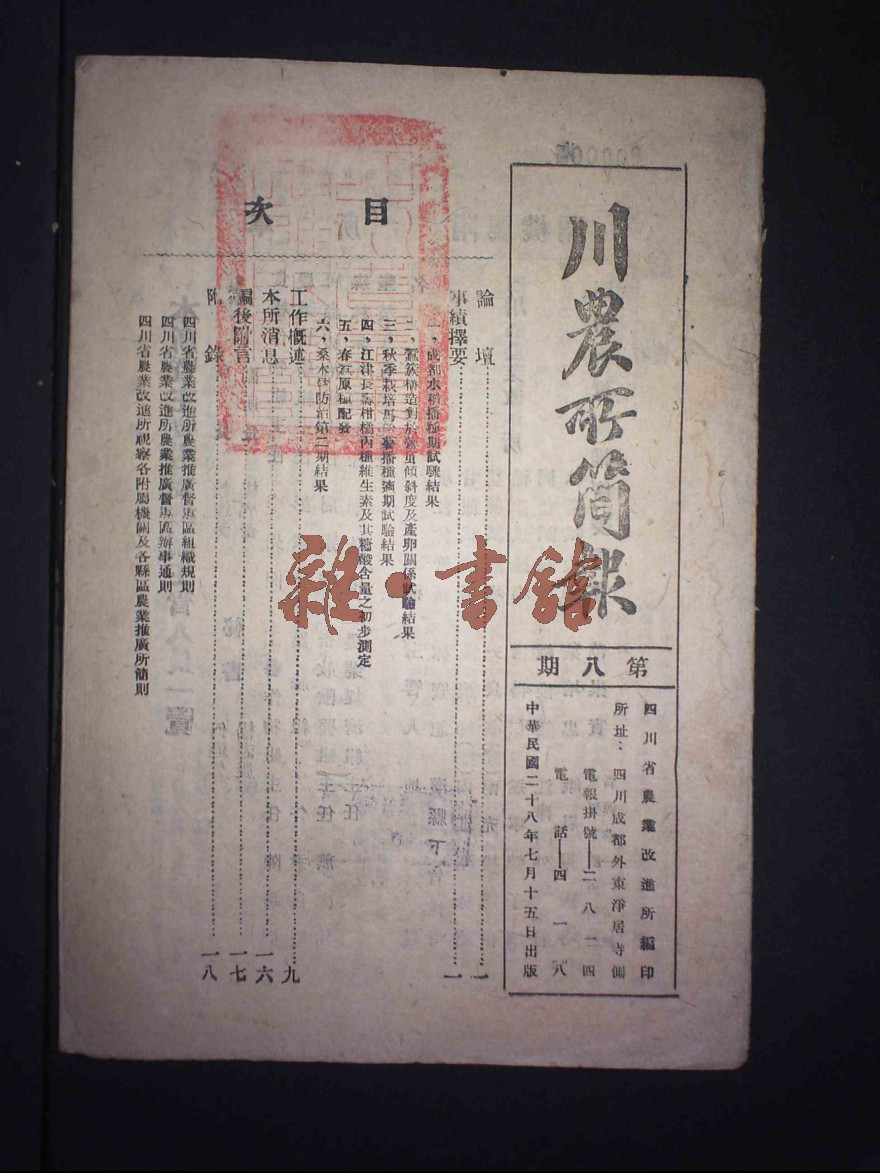 川農所简報
第八期
四川省農業改進所編印
所址：四川成都外東淨居寺側
電報掛號——二八一四
電話——四一八
中華民國二十八年七月十五日出版
目次
論壇……一
事績擇要……一
一，成都水稻播種期試驗結果
二，蠶簇構造對於營繭傾斜度及產卵關係試驗結果
三，秋季栽培馬鈴薯播種適期試驗結果
四，江津長壽柑橘丙種維生素及其糖酸含量之初步測定
五，春蠶原種配發
六，桑木蝨防治第二期結果
工作概述……九
本所消息……一六
編後附言……一七
附錄……一八
四川省農業改進所農業推廣督導區組織規則
四川省農業改進所農業推廣督導區辦事通則
四川省農業改進所視察各附屬機關及各縣區農業推廣所簡則
雜·書館